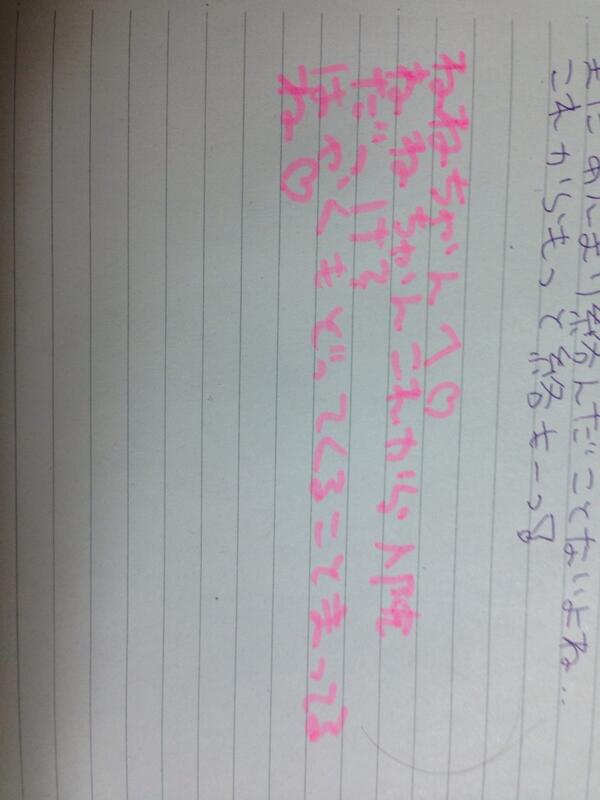 まだあんまり絡んだことないよね…
これからもっと絡も〜っ
ねねちゃんへ♡
ねねちゃんこれから入院
はやくもどってくることまってる
ね♡